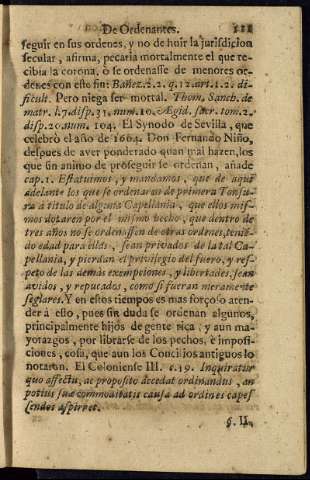 De Ordenantes. 111
seguir en sus ordenes, y no de huìr la jurisdicion
secular, afirma, pecaria mortalmente el que re-
cibia la corona, ò se ordenasse de menores or-
denes con este fin: Bañez. 2. 2. q. 12. art. 1. 2. di-
ficult. Pero niega ser mortal. Thom. Sanch. de
matr. l. 7. disp. 31. num. 10. Ægid. sacr. tom. 2.
disp. 20. num. 104. El Synodo de Sevilla, que
celebrò el año de 1604. Don Fernando Niño,
despues de aver ponderado quan mal hazen, los
que sin animo de proseguir se ordenan, añade
cap. 1. Estatuimos, y mandamos, que de aqui
adelante los que se ordenaran de primera Tonsu-
ra à titulo de alguna Capellania, que ellos mis-
mos dotaren por el mismo hecho, que dentro de
tres años no se ordenassen de otras ordenes, tenie-
do edad para ellas, sean privados de la tal Ca-
pellania, y pierdan el privilegio del fuero, y res-
peto de las demàs exempciones, y libertades, sean
avidos, y reputados, como si fueran meramente
seglares. Y en estos tiempos es mas forçoso aten-
der à esto, pues sin duda se ordenan algunos,
principalmente hijos de gente rica; y aun ma-
yorazgos, por librarse de los pechos, è imposi-
ciones, cosa, que aun los Concilios antiguos lo
notaron. El Coloniense III. c. 19. Inquiratur
quo affectu, ac proposito accedat ordinandus, an
potius suæ commoditatis causa ad ordines capes-
sendos aspirret.
§. II.